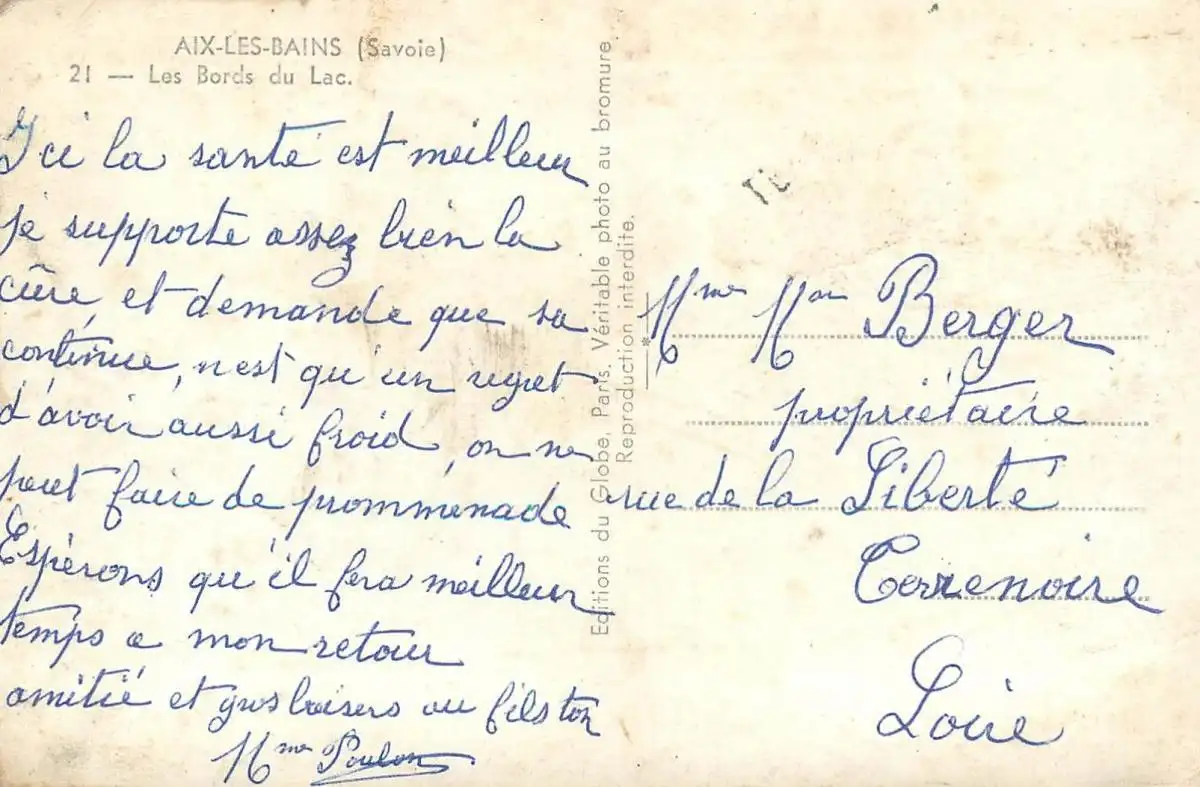 AIX-LES-BAINS (Savoie)
21 — Les Bords du Lac.
Ici la santé est meilleur
je supporte assez bien la
cûre, et demande que sa
continue, n'est qu'un regret
d'avoir aussi froid, on ne
peut faire de prommenade
Espèrons qu'il fera meilleur
temps a mon retour
amitié et gros baisers au fiston
Mme
Editions du Globe, Paris. Véritable photo au bromure.
Reproduction interdite.
Mme Berger
propriétaire
rue de la Liberté
Terrenoire
Loire